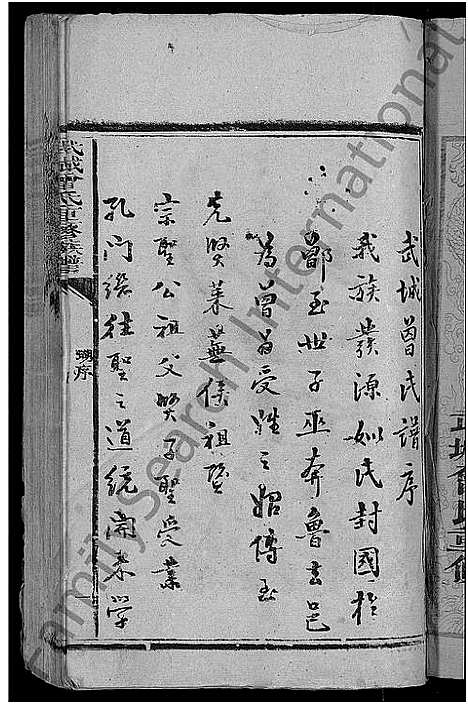 武城曾氏譜序
我族發源姒氏封國於
鄫至世子巫奔魯去邑
為曾省受姓之始傳至
先賢萊蕪侯祖暨
宗聖公祖父賢子聖受業
孔門繼往聖之道統開來學
武城曾氏重修族譜
序
FamilySearch International